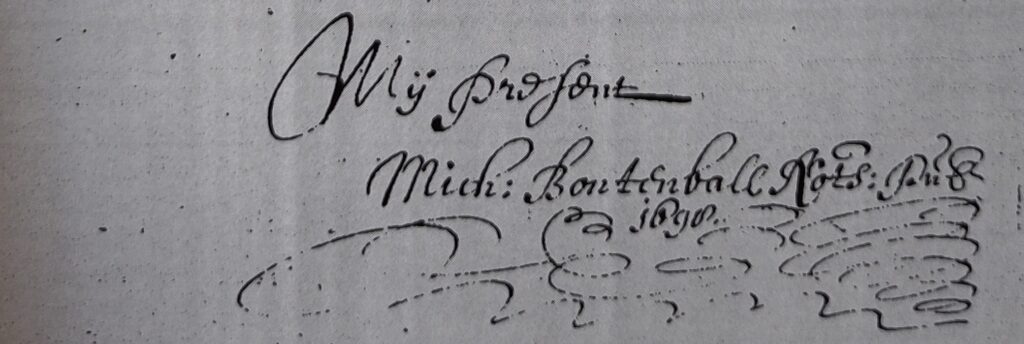 Mij present
Mich: Bontenball Nots: Pub
1690.